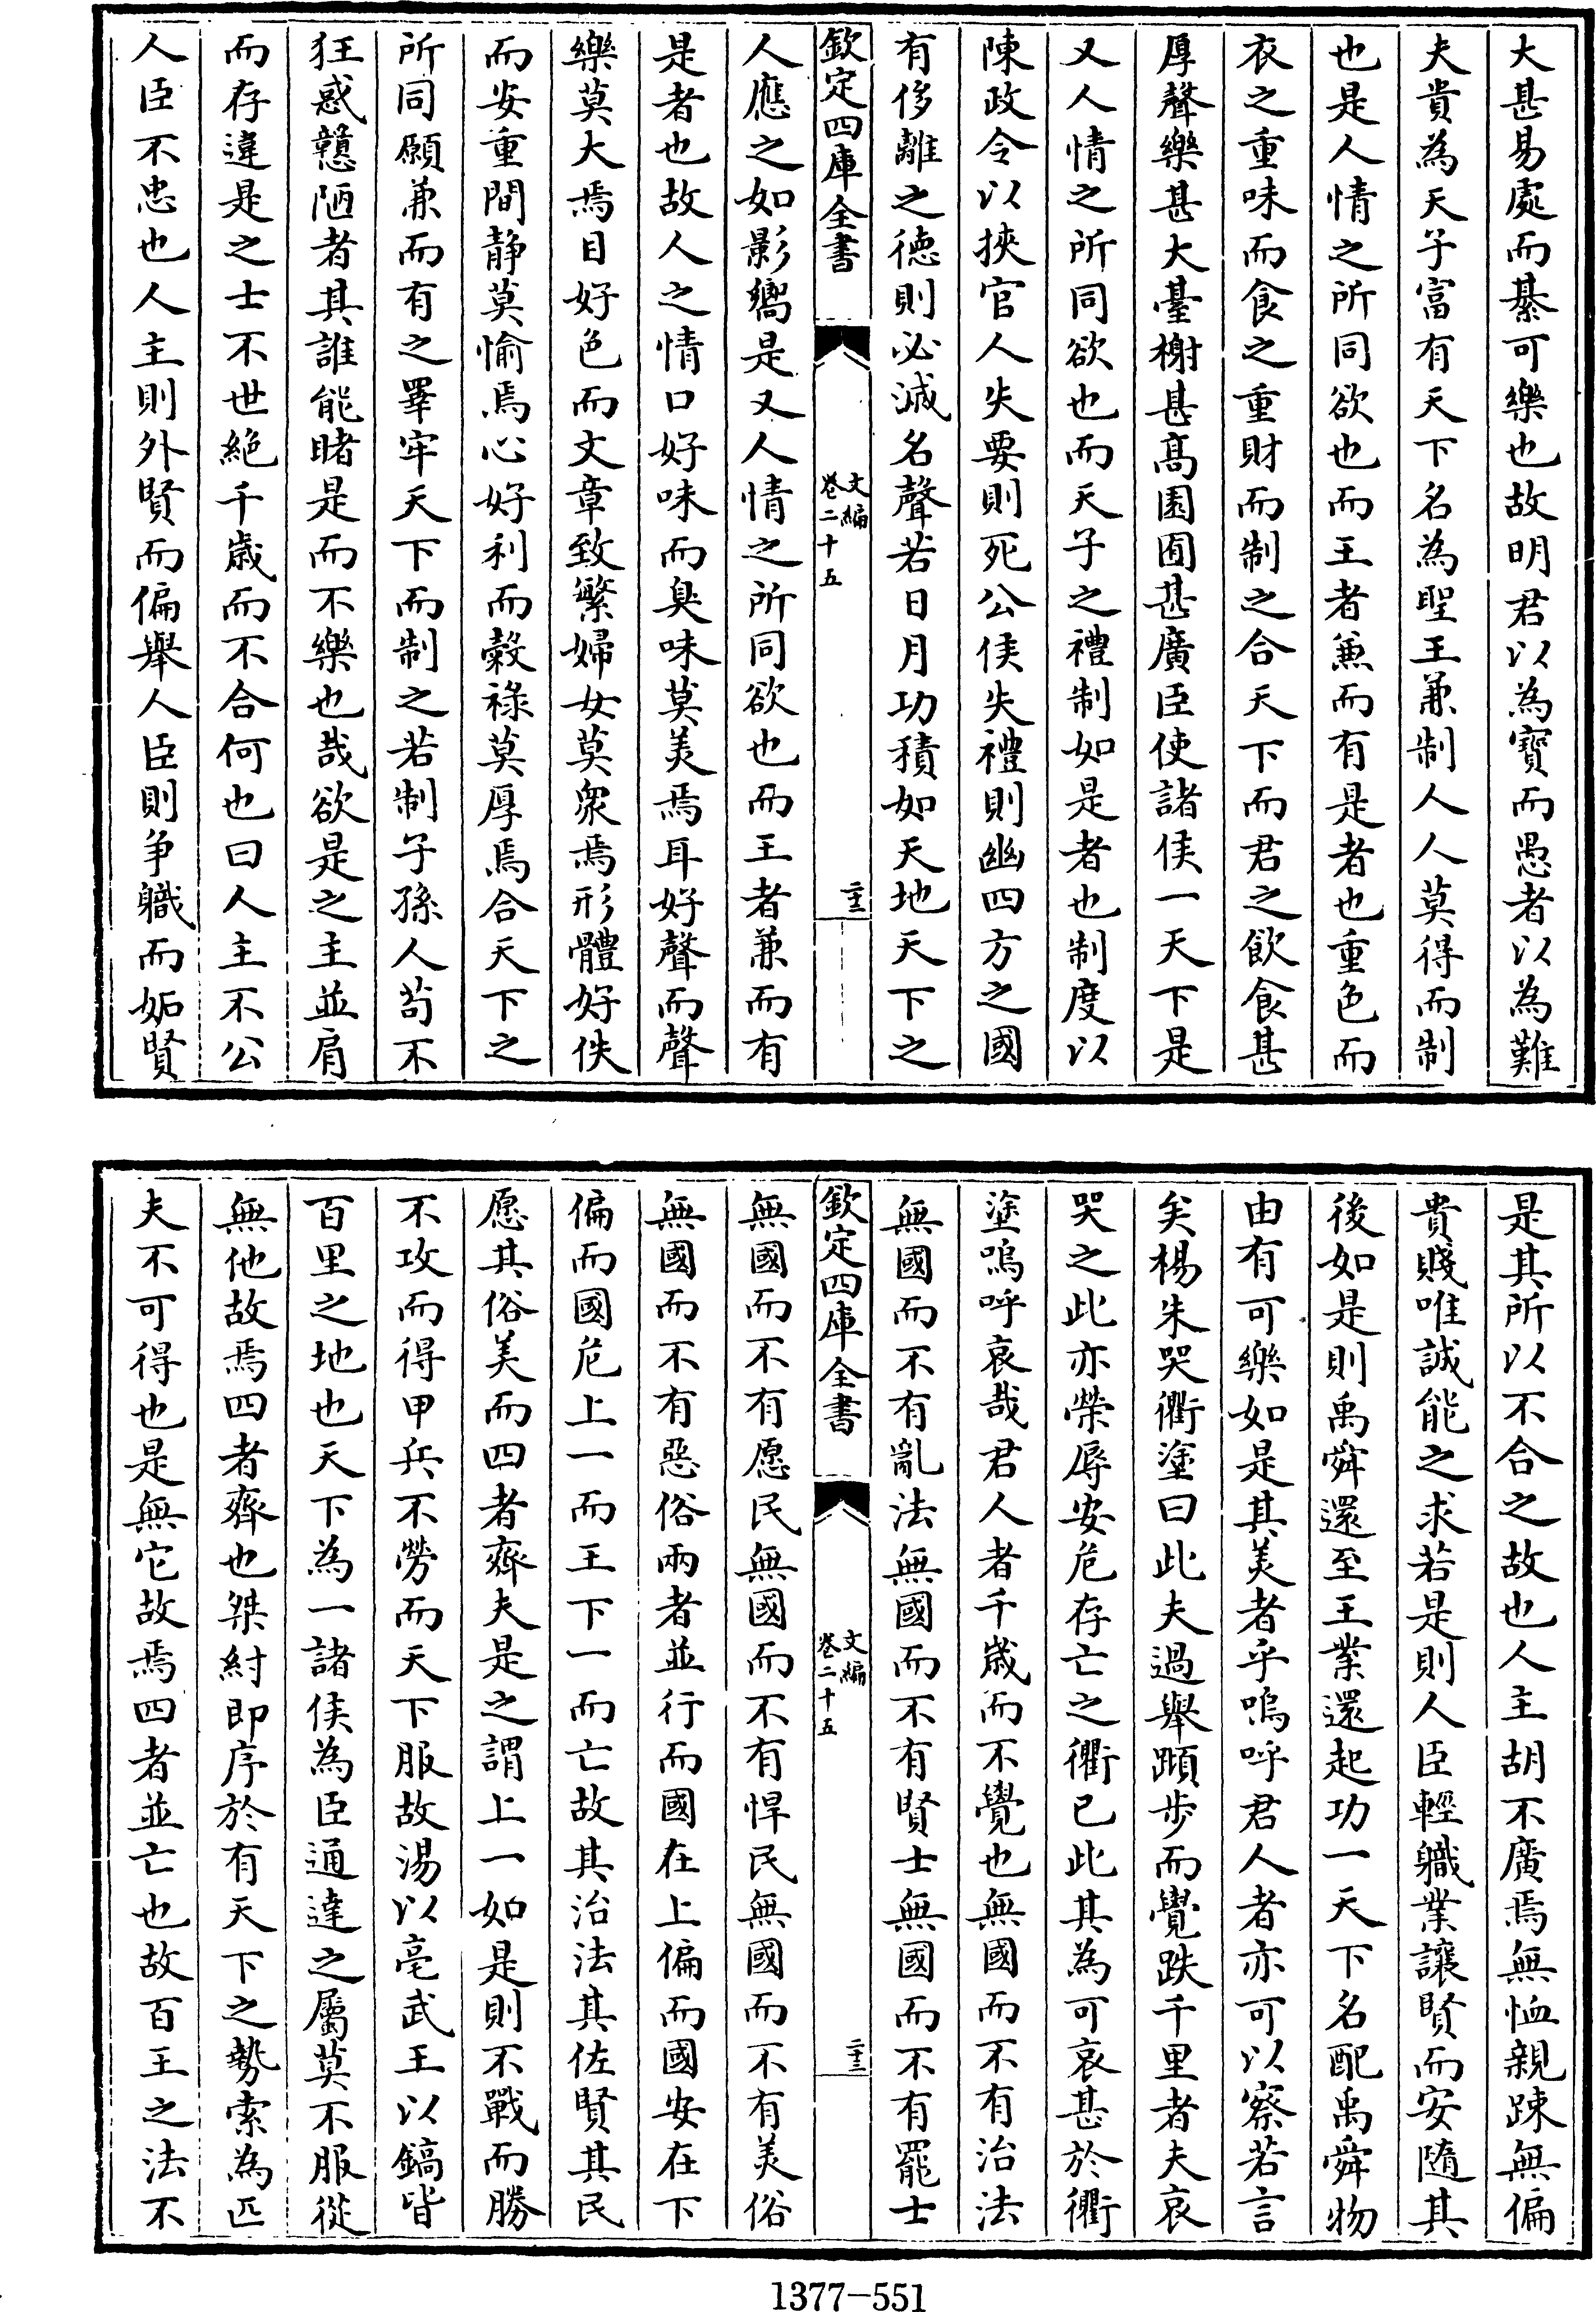 大甚易處而綦可樂也故明君以為寳而愚者以為難
夫貴為天子富有天下名為聖王兼制人人莫得而制
也是人情之所同欲也而王者兼而有是者也重色而
衣之重味而食之重財而制之合天下而君之飲食甚
厚聲樂甚大臺榭甚髙園囿甚廣臣使諸侯一天下是
又人情之所同欲也而天子之禮制如是者也制度以
陳政令以挾官人失要則死公侯失禮則幽四方之國
有侈離之徳則必滅名聲若日月功積如天地天下之
欽定四庫全書
文編
卷二十五
二十二
人應之如影嚮是又人情之所同欲也而王者兼而有
是者也故人之情口好味而臭味莫美焉耳好聲而聲
樂莫大焉目好色而文章致繁婦女莫衆焉形體好佚
而安重間静莫愉焉心好利而榖祿莫厚焉合天下之
所同願兼而有之睪牢天下而制之若制子孫人茍不
狂惑戇陋者其誰能睹是而不樂也哉欲是之主並肩
而存違是之士不世絶千歲而不合何也曰人主不公
人臣不忠也人主則外賢而偏舉人臣則争職而妬賢
是其所以不合之故也人主胡不廣焉無恤親踈無偏
貴賤唯誠能之求若是則人臣輕職業讓賢而安隨其
後如是則禹舜還至王業還起功一天下名配禹舜物
由有可樂如是其美者乎嗚呼君人者亦可以察若言
矣楊朱哭衢塗曰此夫過舉蹞步而覺跌千里者夫哀
哭之此亦榮辱安危存亡之衢已此其為可哀甚於衢
塗嗚呼哀哉君人者千歲而不覺也無國而不有治法
無國而不有亂法無國而不有賢士無國而不有罷士
欽定四庫全書
文編
卷二十五
二十三
無國而不有愿民無國而不有悍民無國而不有美俗
無國而不有惡俗兩者並行而國在上偏而國安在下
偏而國危上一而王下一而亡故其治法其佐賢其民
愿其俗美而四者齊夫是之謂上一如是則不戰而勝
不攻而得甲兵不勞而天下服故湯以亳武王以鎬皆
百里之地也天下為一諸侯為臣通達之屬莫不服從
無他故焉四者齊也桀紂即序於有天下之勢索為匹
夫不可得也是無它故焉四者並亡也故百王之法不
1377-551